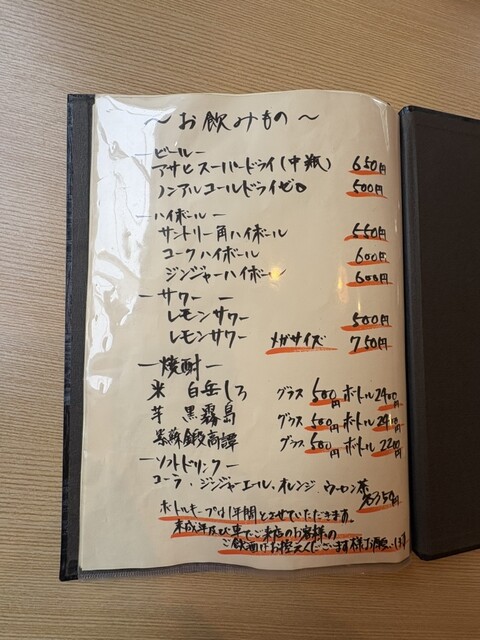 ～お飲みもの～
－ビール－
アサヒスーパードライ(中瓶) 650円
ノンアルコールドライゼロ 500円
－ハイボール－
サントリー角ハイボール 550円
コークハイボール 600円
ジンジャーハイボール 600円
－サワー－
レモンサワー 500円
レモンサワー メガサイズ 750円
－焼酎－
米 白岳しろ グラス500円 ボトル2400円
芋 黒霧島 グラス500円 ボトル2410円
紫蘇 鍛高譚 グラス500円 ボトル2200円
－ソフトドリンク－
コーラ・ジンジャーエール・オレンジ・ウーロン茶
各350円
ボトルキープは1年間とさせていただきます。
未成年及び車でご来店のお客様の
ご飲酒はお控え下さいます様お願い